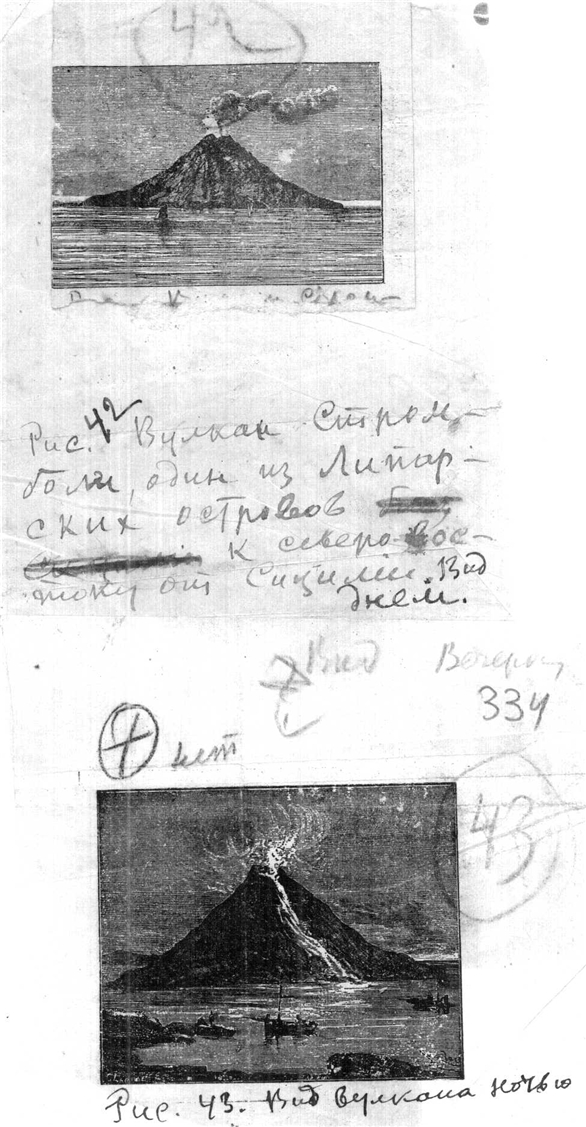 42
Рис. 42 Вулкан Стром-
боли, один из Липар-
ских островов
к северо-вос-
току от Сицилии. Вид
днем.
Вид Вечером
334
нет
43
Рис. 43. Вид вулкана ночью